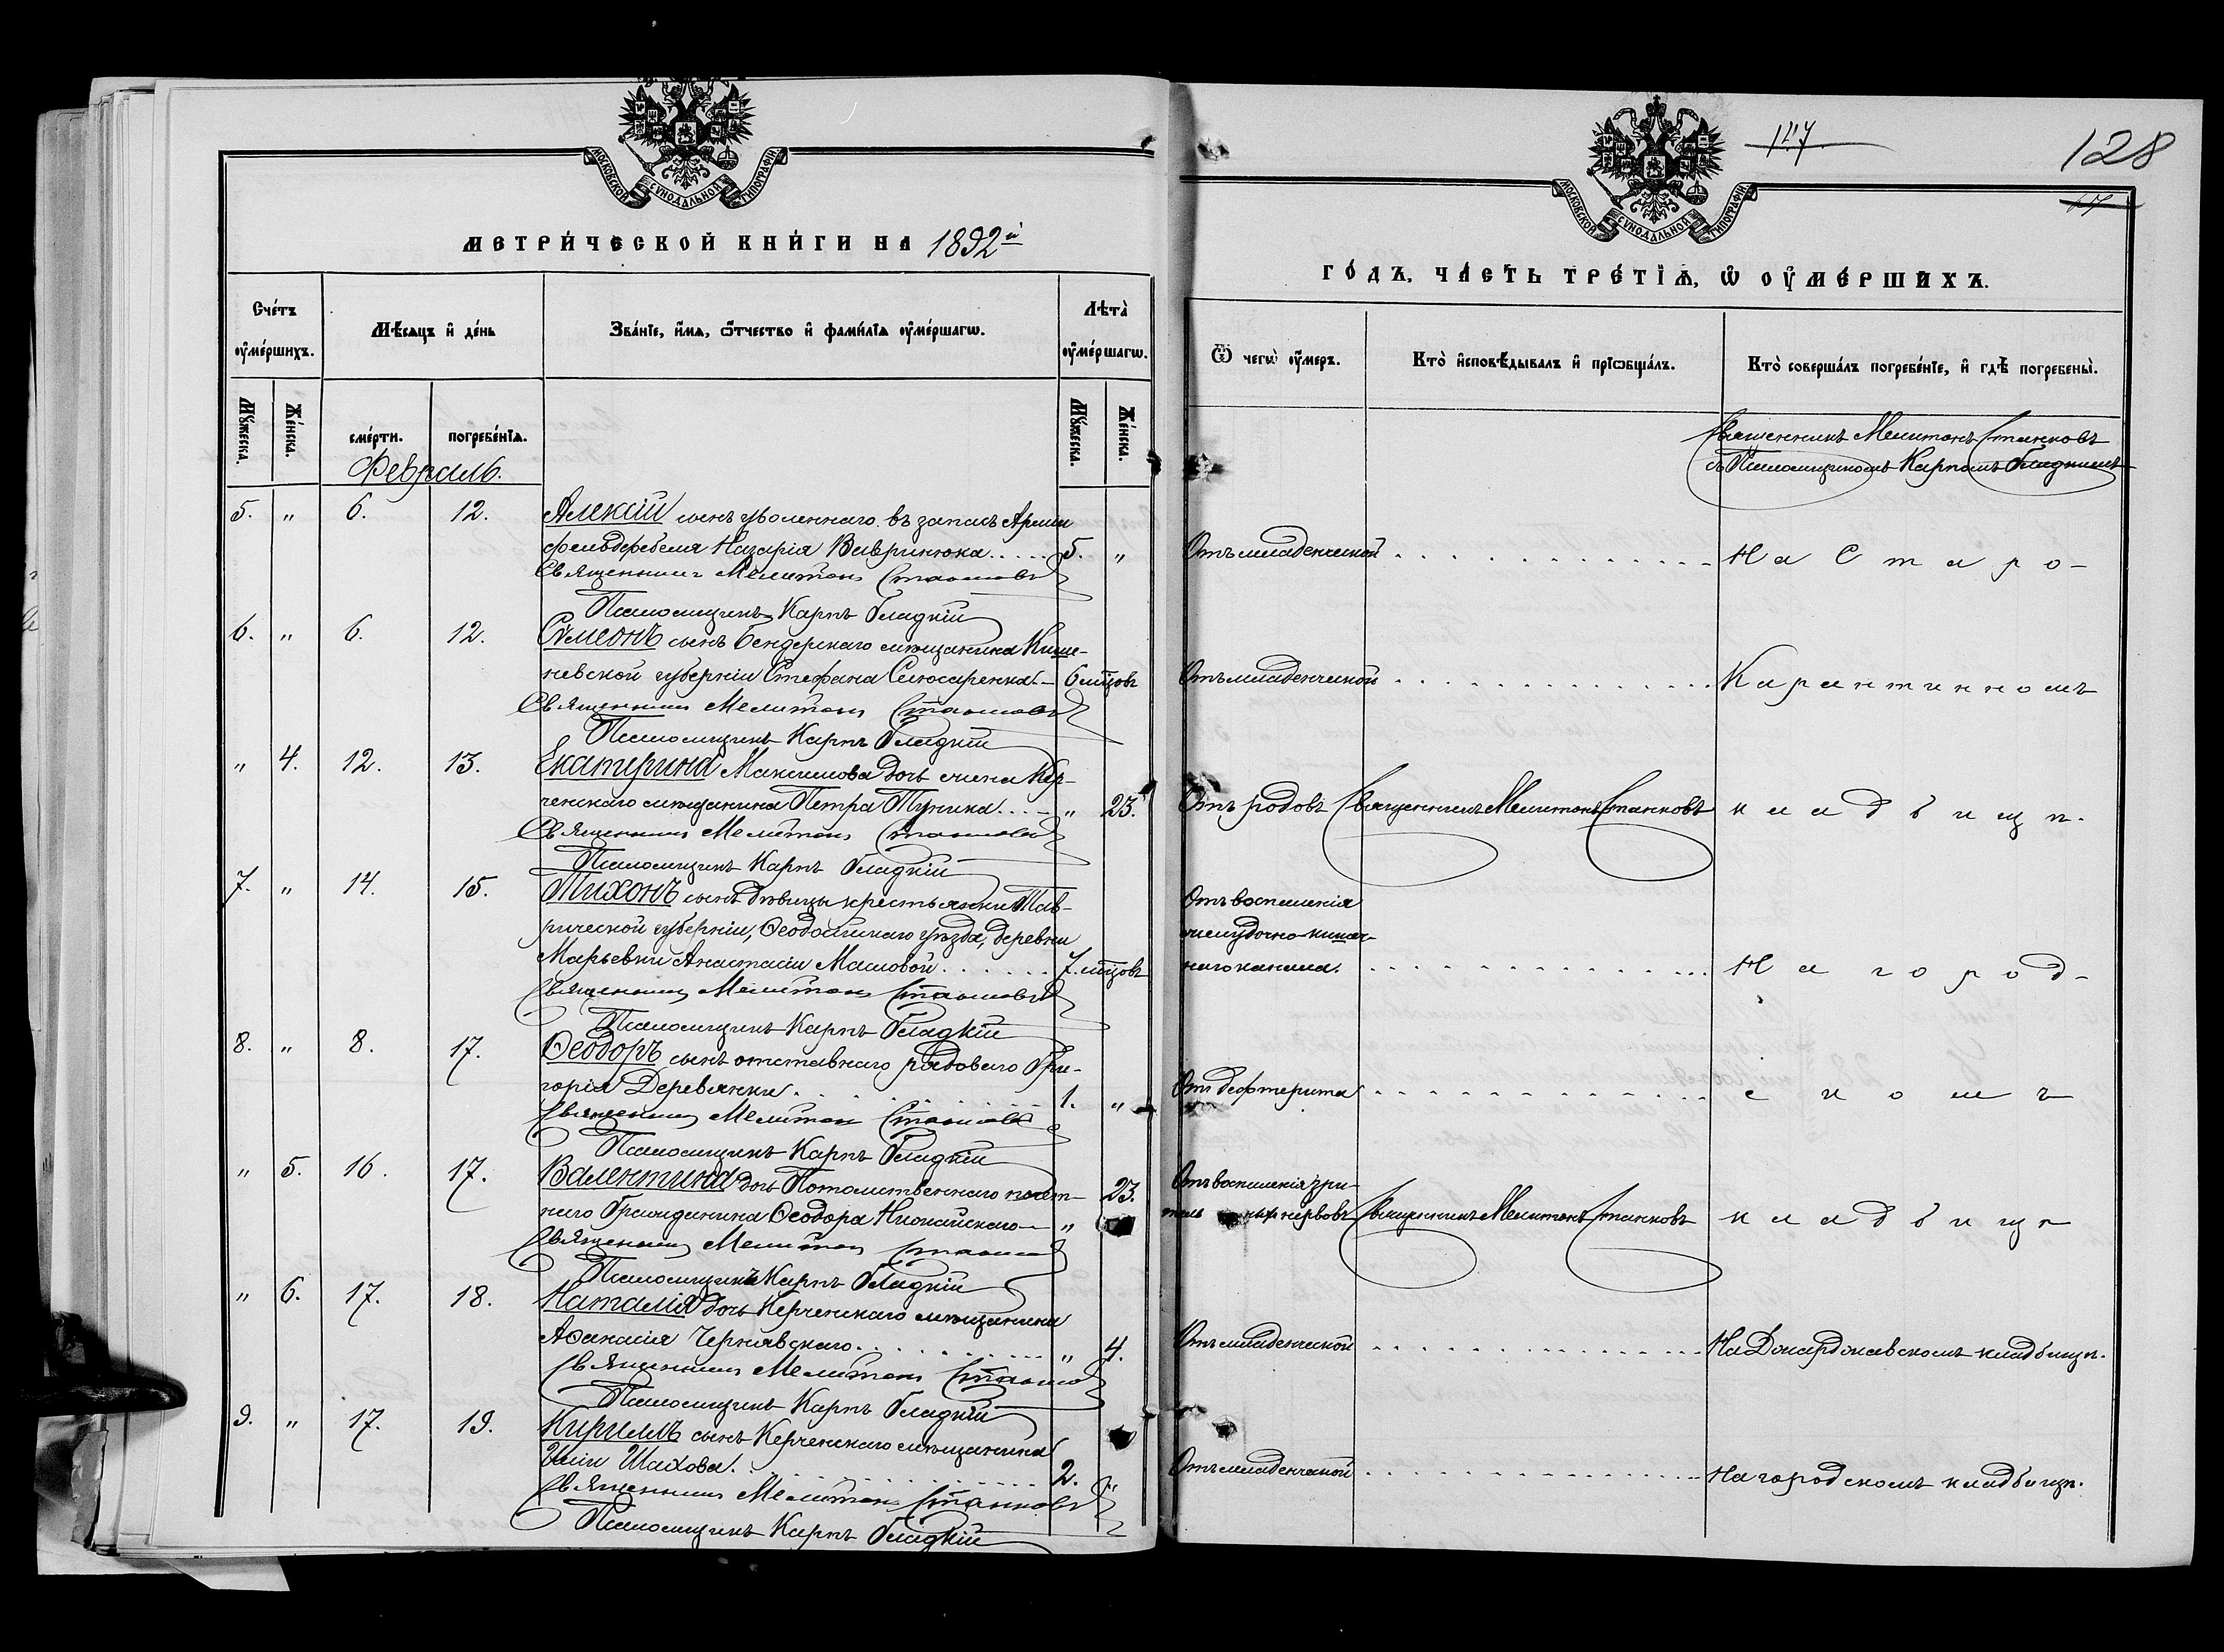 МОСКОВСКОЙ СѴНОДАЛЬНОЙ ТИПОГРАФІИ
МЕТРИ́ЧЕСКОЙ КНИ́ГИ НА 1892й
Сче́тъ ᲂу҆ме́ршихъ.
Мѣ́сѧцъ и҆ де́нь
Зва́нїе, и҆́мѧ, ѻ҆́тчество и҆ фами́лїѧ ᲂу҆ме́ршагѡ.
Лѣта̀ ᲂу҆ме́ршагѡ.
Мꙋ́жеска.
Же́нска.
сме́рти.
погребе́нїѧ.
Мꙋ́жеска.
Же́нска.
Февраль.
5. " 6. 12. Алексій сынъ уволеннаго въ запасъ Арміи
фельдфебеля Назарія Вавринюка..... 5. "
Священникъ Мелитонъ Станковъ
Псаломщикъ Карпъ Гладкій
6. " 6. 12. Сѵмеонъ сынъ Бендерскаго мѣщанина Кише-
невской губерніи Стефана Слюсаренка. 6 мцовъ
Священникъ Мелитонъ Станковъ
Псаломщикъ Карпъ Гладкій
" 4. 12. 13. Екатерина Максимова дочь жена Кер-
ченскаго мѣщанина Петра Тупика.... " 23.
Священникъ Мелитонъ Станковъ
Псаломщикъ Карпъ Гладкій
7. " 14. 15. Тихонъ сынъ дѣвицы крестьянки Тав-
рической губерніи, Ѳеодосійскаго уѣзда, деревни
Марьевки Анастасіи Масловой....... 7. мцовъ
Священникъ Мелитонъ Станковъ
Псаломщикъ Карпъ Гладкій
8. " 8. 17. Ѳеодоръ сынъ отставнаго рядоваго Гри-
горія Деревянки. 1. "
Священникъ Мелитонъ Станковъ
Псаломщикъ Карпъ Гладкій
" 5. 16. 17. Валентина дочь Потомственнаго почет- 23.
наго Гражданина Ѳеодора "
Священникъ Мелитонъ Станковъ
Псаломщикъ Карпъ Гладкій
" 6. 17. 18. Наталія дочь Керченскаго мѣщанина
Аѳанасія Чернявскаго. " 4.
Священникъ Мелитонъ Станковъ
Псаломщикъ Карпъ Гладкій
9. " 17. 19. Кириллъ сынъ Керченскаго мѣщанина
Иліи Шахова. 2. "
Священникъ Мелитонъ Станковъ
Псаломщикъ Карпъ Гладкій
128
МОСКОВСКОЙ СѴНОДАЛЬНОЙ ТИПОГРАФІИ
ГО́ДЪ, ЧА́СТЬ ТРЕ́ТЇѦ, Ѡ҆ ОУ҆МЕ́РШИХЪ.
Ѿ чегѡ̀ ᲂу҆́меръ.
Кто̀ и҆сповѣ́дывалъ и҆ прїѡбща́лъ.
Кто̀ соверша́лъ погребе́нїе, и҆ гдѣ̀ погребены̀.
Священникъ Мелитонъ Станковъ
съ Псаломщикомъ Карпомъ Гладкимъ
Отъ младенческой На Старо-
Отъ младенческой Карантинномъ
Отъ родовъ Священникъ Мелитонъ Станковъ кладбищѣ.
Отъ воспаленія
желудочно-кишеч-
наго канала. На город-
Отъ дифтерита скомъ
Отъ воспаленія зри-
тель ныхъ нервовъ Священникъ Мелитонъ Станковъ кладбищѣ
Отъ младенческой На Джарджавскомъ кладбищѣ.
Отъ младенческой На городскомъ кладбищѣ.